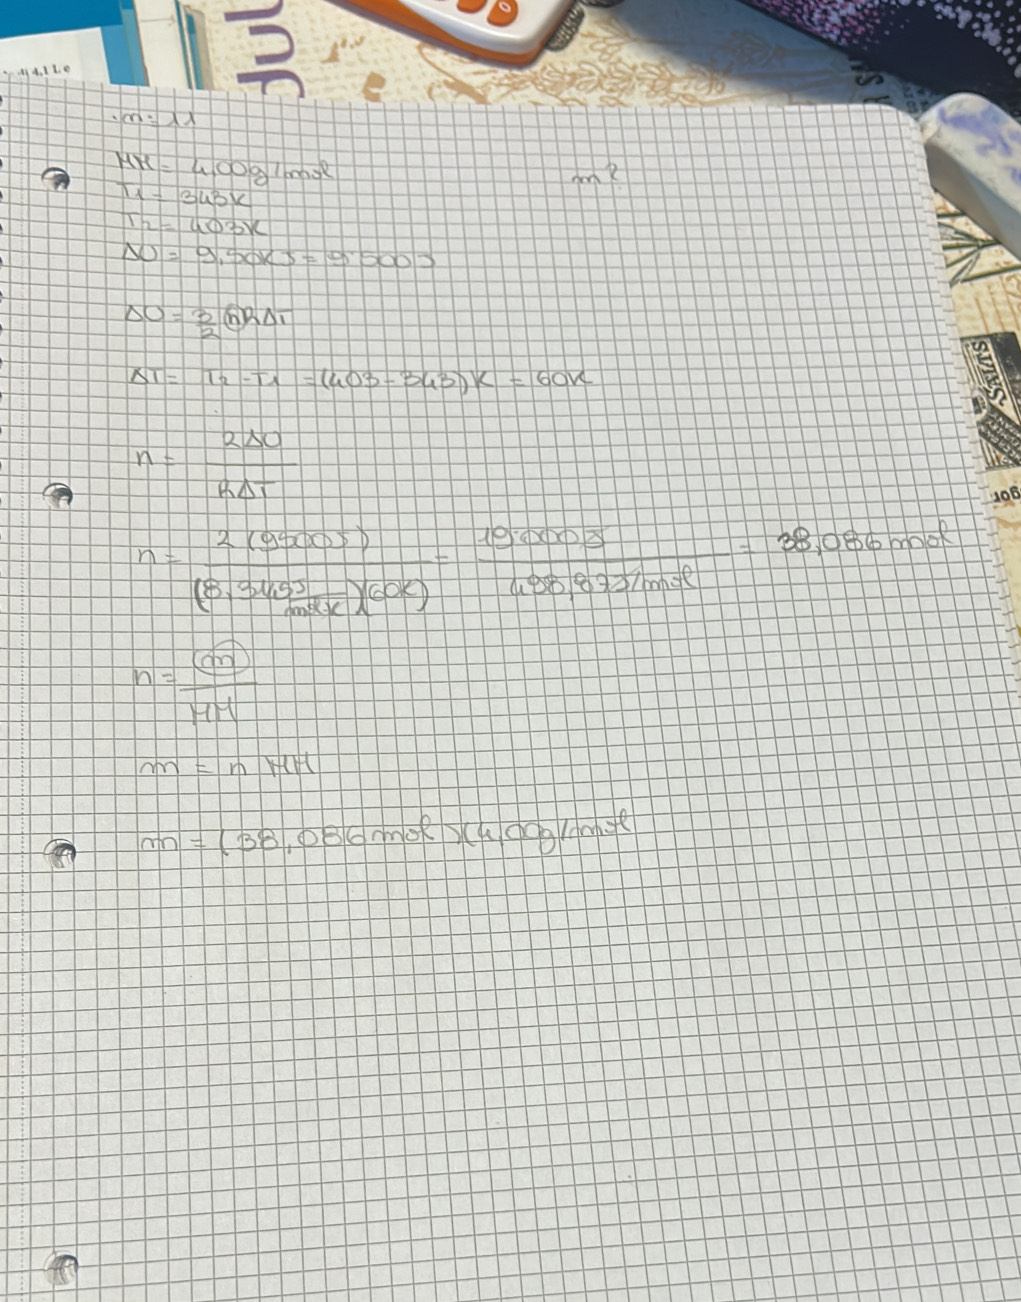 JUL
.n=11
MM= 4,00g/mol
m?
T1= 343K
T2= 403K
ΔU= 9,50KJ = 9500J
ΔU= 3/2 nRΔT
ΔT= T2 -T1 =(403-343)K = 60K
n= 2ΔU/RΔT
n= 2 (9500J)/(8,3145J/mol×K)(60K) = 19.000J/498,87J/mol = 38,086mol
n= m/MM
m = n MM
m = (38,086mol)(4,00g/mol